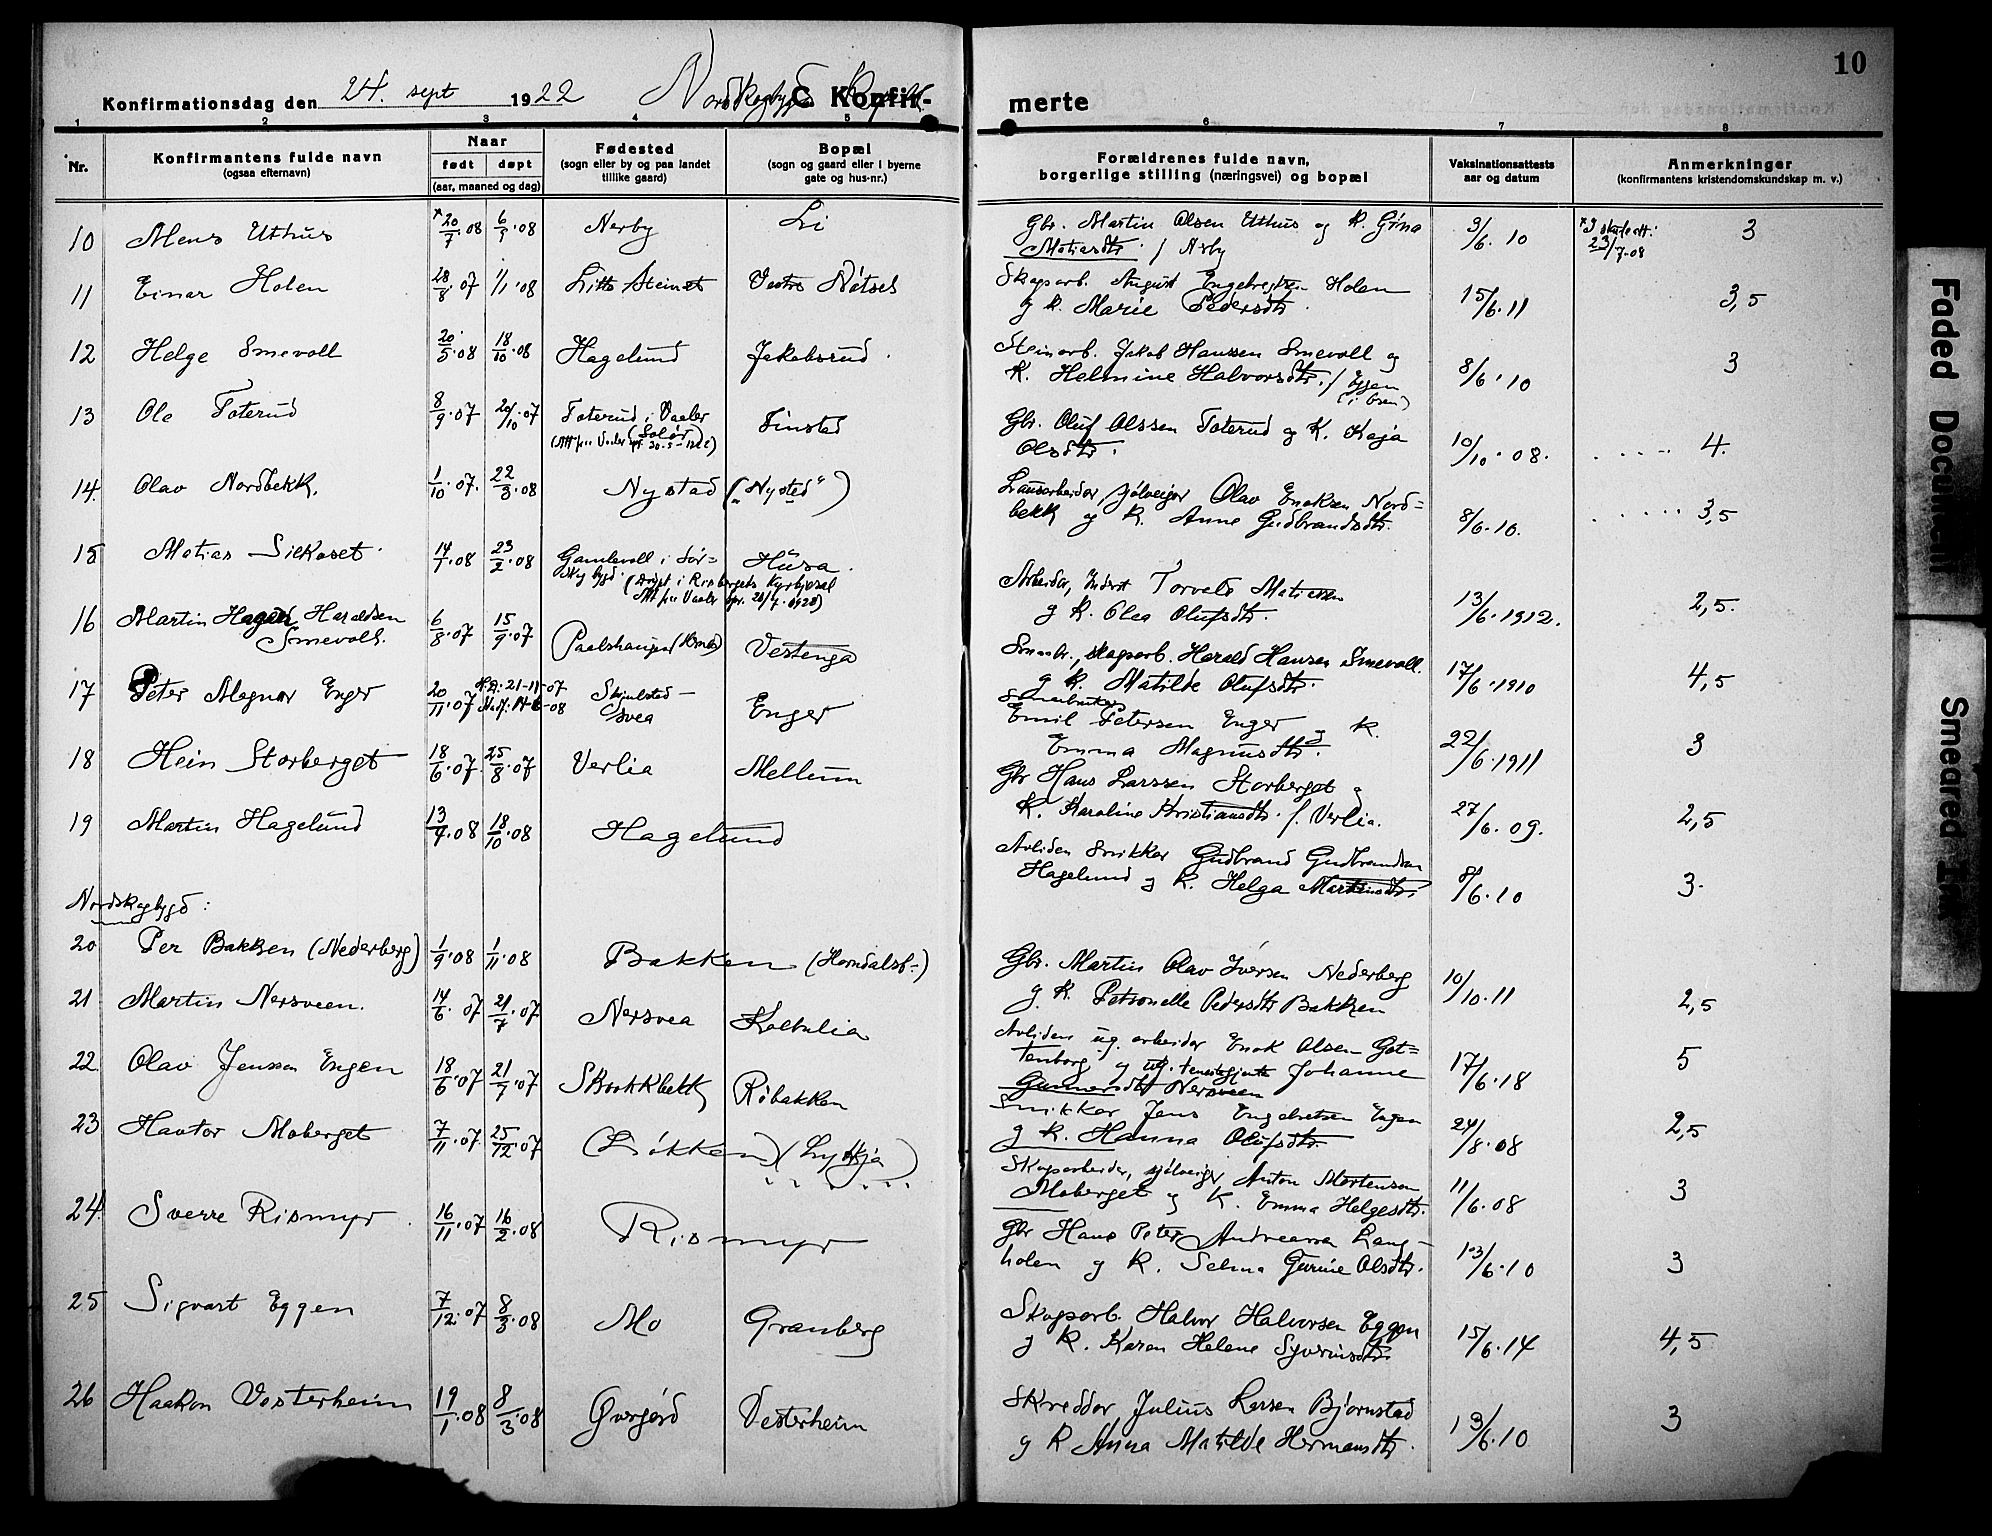 10
Konfirmationsdag den 24. sept 1922 Nordskogbygd C. Konfir-merte
1 2 3 4 5 6 7 8
Nr. Konfirmantens fulde navn (ogsaa efternavn) Naar født døpt (aar, maaned og dag) Fødested (sogn eller by og paa landet tillike gaard) Bopæl (sogn og gaard eller i byerne gate og hus-nr.) Forældrenes fulde navn, borgerlige stilling (næringsvei) og bopæl Vaksinationsattests aar og datum Anmerkninger (konfirmantens kristendomskundskap m. v.)
10 Mens Uthus 20/7.08 08 Nerby Li Gbr. Martin Olsen Uthus og K. Gina 3/6.10 3
Matiasdtr. 23/7-08
11 Einar Holen 28/8.07 1/1.08 Skogsarb. August Holen
og K. Marie Pedersdtr. 15/6.11 3,5
12 Helge Smevoll 20/5.08 18/10.08 Hagelund Jakobsrud. Steinarb. Jakob Hanssen Smevoll og
K. Helmine Halvorsdtr. / Eggen (i Osen) 8/6.10 3
13 Ole Toterud 8/9.07 20/10.07 Toterud i Vaaler (Solør) Finstad Gbr. Oluf Olssen Toterud og K. Kaja
Olsdtr. 10/10.08. 4.
14. Olav Nordbekk. 1/10.07. 22/3.08 Nystad („Nysted") sjølveiger Olav Enoksen Nord=
bekk og K. Anne Gudbrandsdtr. 8/6.10. 3,5
15 Matias Silkoset. 08 23/2.08 Gamlevoll i Sør=skogbygd. Husa. (Døypt i Risberget Arbeidar, Torvald Matiassen
og K. Olea Olufsdtr. 13/6.1912. 2,5.
16 Martin Hagen Haraldsen
Smevoll. 6/8.07 15/9.07 Paalshaugen Vestenga skogsarb. Harald Hansen Smevoll.
og K. Matilde Olufsdtr. 17/6.1910 4,5
17 Peter Magnar Enger 20/11.07 H.D: 21-11-07 Skjulstad-svea Enger
Emil Petersen Enger og K.
Emma Magnusdtr. 22/6.1911 3
18 Hein Storberget 18/6.07. 25/8.07 Verlia Mellum Gbr Hans Larssen Storberget og
K. Karoline Kristiansdtr. f. Verlia. 27/6.09. 2,5
19 Martin Hagelund 08 18/10.08 Hagelund Avliden snikker Gudbrand Gudbrandsen
Hagelund og K. Helga Martinsdtr. 8/6.10 3.
Nordskogbygd:
20 Per Bakken (Nederberg) 1/9.08 1/11.08 Bakken (Horndalsb-) Gbr. Martin Olav Iversen Nederberg
og K. Petronelle Pedersdtr Bakken 10/10.11 2,5
21 Martin Nersveen. 14/6.07 21/7.07 Nersvea Kolbulia Avliden ug. arbeider Enok Olsen Got=
tenborg og ug. tenestgjente Johanne
Gunnersdtr Nersveen 17/6.18 5
22. Olav Jenssen Engen 18/6.07 21/7.07 Skaukbekk Røbakken Snikker Jens Engebretsen Engen
og K. Hanna Olufsdtr. 24/8.08 2,5
23 Havtor Moberget 7/11.07. 25/12.07 (Løkken) (Lykkja) Skogsarbeidar, sjølveiger Anton Mortensen
Moberget og K. Emma Helgesdtr. 11/6.08 3
24. Sverre Rismyr. 16/11.07 16/2.08 Rismyr Gbr Hans Peter Andreassen Lang-
holen og K. Selma Gurine Olsdtr. 13/6.10 3
25 Sigvart Eggen 7/12.07 8/3.08 Mo Granberg Skogsarb. Halvor Halvorsen Eggen
og K. Karen Helene Syverinsdtr. 15/6.14 4,5
26 Haakon Vesterheim 19/1.08 8/3.08 Øvergård Vesterheim Skreddar Julius Larsen Bjørnstad
og K Anna Matilde Hermansdtr. 13/6.10 3
Faded Document
Smeared Ink